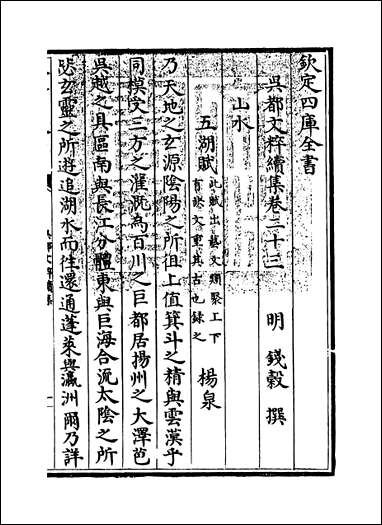 欽定四庫全書
吳都文粹續集卷二十三
明 錢穀 撰
山水
五湖賦 此賦出藝文類聚上下有缺文重其古也錄之 楊泉
乃天地之玄源陰陽之所徂上值箕斗之精與雲漢乎
同模受三方之灌溉為百川之巨都居揚州之大澤苞
吳越之具區南與長江分體東與巨海合流太陰之所
毖玄靈之所遊追湖水而往還通蓬萊與瀛洲爾乃詳